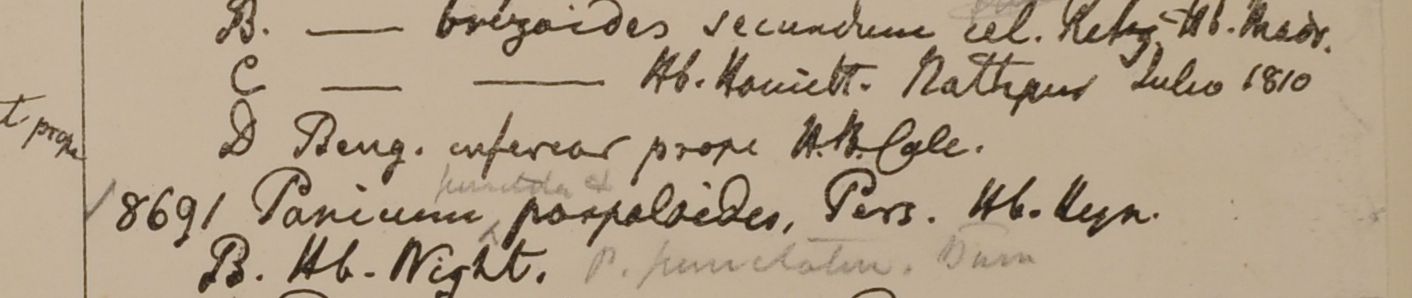 B. — brizoides secundum cel. Retz. Hb. Madr.
C — — Hb. Hamilt. Nathpur Julio 1810
t prope
D Beng. inferior prope H.B. Calc.
punctata &
8691 Panicum paspaloides, Pers. Hb. Heyn.
B. Hb. Wight. P. punctatum. Burm